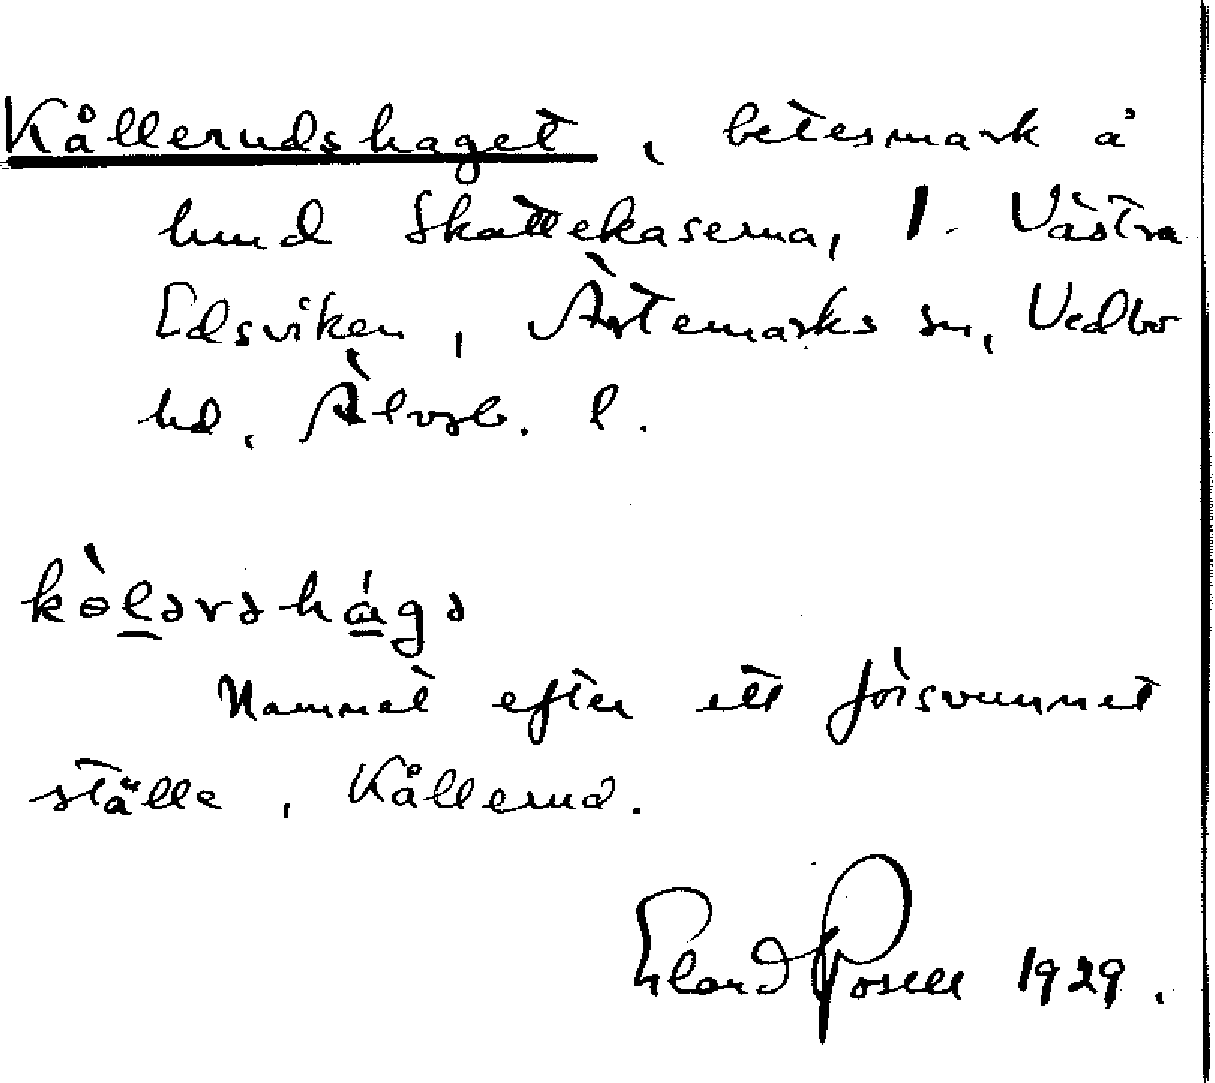 Kållerudshaget, betesmark å
hmd Skottekaserna, 1. Västra
Edsviken, Ärtemarks sn, Vedbo
hd. Älvsb. l.
kòlərəshágə
Namnet efter ett försvunnet
ställe, Kållerud.
Erland Rosell 1929.